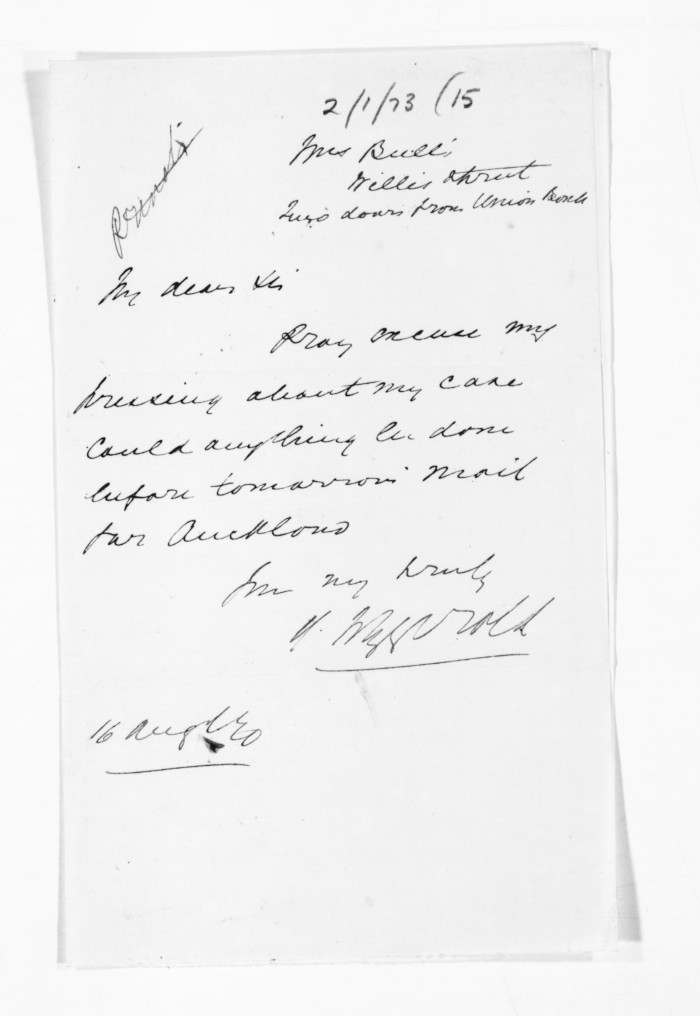 2/1/73 (15
Mrs Bull's
Willis Street
Two doors from Union Bank
My dear Sir
Pray excuse my
pressing about my case
Could anything be done
before tomorrow's mail
for Auckland
Yrs vy truly
16 Aug